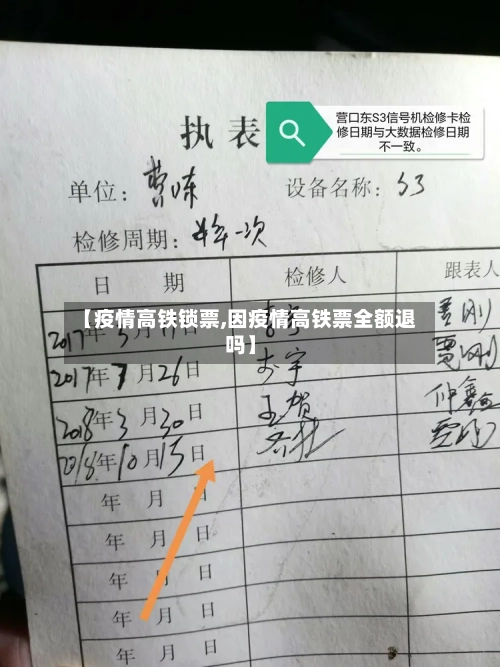 营口东S3信号机检修卡检
修日期与大数据检修日期
不一致。
执表
单位：
设备名称：S3
检修周期：半年一次
日 期 检修人 跟表人
【疫情高铁锁票,因疫情高铁票全额退
吗】
2017年 月 日 刚
2017年7月26日 李宇
2018年3月30日 王贺
2018年10月15日
年 月 日
年 月 日
年 月 日
年 月 日
年 月 日